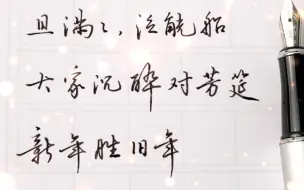 且满〻，泛觥船
大家沉醉对芳筵
新年胜旧年